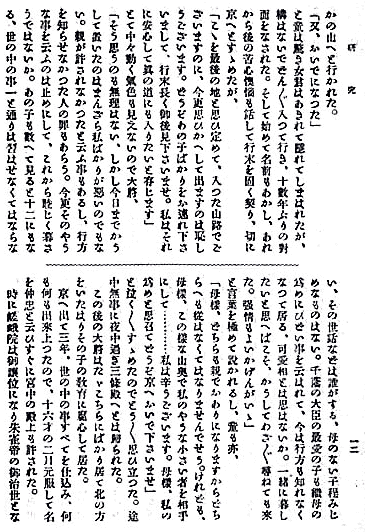 研究
かの山へと行かれた。
「又、おいでになつた」
と童は驚き女君はあきれて隠れてしまはれたが、
構はないでどん〱入つて行き、十数年ぶりの対
面をなされた。そして始めて名前もあかし、あれ
から後の苦心懊悩も話して行末を固く契り、切に
京へとすゝめたが、
「こゝを最後の地と思ひ定めて、入つた山路でご
ざいますのに、今更思ひかへして出ますのは恥し
うございます。どうぞあの子ばかりをお連れ下さ
いまして、行末長く御後見下さいませ。私はそれ
に安心して真の道にも入りたいと存じます」
と中々動く気色も見えないので大将、
「そう思ふのも無理はない、しかし今日までかう
して置いたのはまんざら私ばかりが悪いのでもな
い。親が許されなかつたと云ふ事もあるし、行方
を知らせなかつた人の罪もあらう。今更そのやう
な事を云ふのは止めにして、これから睦じく暮さ
うではないか。あの子も数へて見ると十二にもな
る、世の中の事一と通りは習はせなくてはならな
い、その世話などは誰がする、母のない子程みじ
めなものはない。千蔭の大臣の最愛の子も継母の
為めにひどい事を云はれて、今は行方も知れなく
なつて居る、可愛相とは思はないか。一緒に暮し
たいと思へばこそ、かうしてわざ〱尋ねても来
た。強情もよいかげんがいゝ」
と言葉を極めて説かれるし、童も亦、
「母様、どちらも親でおありになりますからどち
らへも従はなくてはなりませんでせう。けれども、
母様、この様な山奥で私のやうな小さい者を相手
にして…………私は辛うございます。母様、私の
為めと思召てどうぞ京へおいで下さいませ」
と泣く〱すゝめたのでとう〱思ひ立つた。途
中無事に夜中過ぎ三條殿へとは帰られた。
この後の大将はたゞこちらにばかり居て北の方
をいたはりその子の教育に腐心して居た。
京へ出て三年、世の中の事すべてを仕込み、何
も何も出来上つたので、十六才の二月元服して名
を仲忠と云ひすぐに宮中の殿上も許された。
時に嵯峨院は御譲位になり朱雀帝の御治世とな
一二